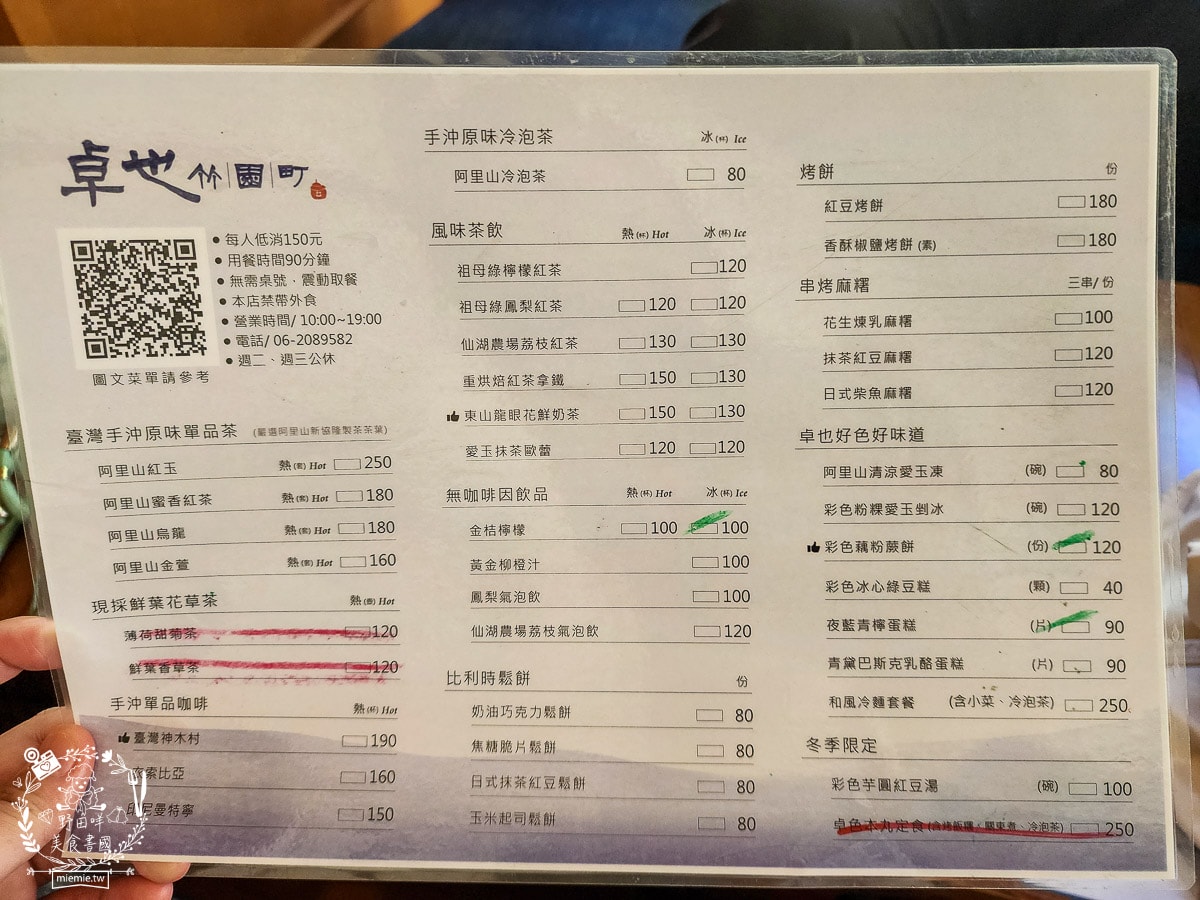 卓也竹園町
每人低消150元
用餐時間90分鐘
無需桌號、震動取餐
本店禁帶外食
營業時間/ 10:00~19:00
電話/ 06-2089582
週二、週三公休
圖文菜單請參考
臺灣手沖原味單品茶 (嚴選阿里山新協隆製茶茶葉)
阿里山紅玉 熱(套) Hot 250
阿里山蜜香紅茶 熱(套) Hot 180
阿里山烏龍 熱(套) Hot 180
阿里山金萱 熱(套) Hot 160
現採鮮葉花草茶 熱(壺) Hot
薄荷甜菊茶 120
鮮葉香草茶 120
手沖單品咖啡 熱(杯) Hot
臺灣神木村 190
衣索比亞 160
印尼曼特寧 150
手沖原味冷泡茶 冰(杯) Ice
阿里山冷泡茶 80
風味茶飲 熱(杯) Hot 冰(杯) Ice
祖母綠檸檬紅茶 120
祖母綠鳳梨紅茶 120 120
仙湖農場荔枝紅茶 130 130
重烘焙紅茶拿鐵 150 130
東山龍眼花鮮奶茶 150 130
愛玉抹茶歐蕾 120 120
無咖啡因飲品 熱(杯) Hot 冰(杯) Ice
金桔檸檬 100 100
黃金柳橙汁 100
鳳梨氣泡飲 100
仙湖農場荔枝氣泡飲 120
比利時鬆餅 份
奶油巧克力鬆餅 80
焦糖脆片鬆餅 80
日式抹茶紅豆鬆餅 80
玉米起司鬆餅 80
烤餅 份
紅豆烤餅 180
香酥椒鹽烤餅 (素) 180
串烤麻糬 三串/份
花生煉乳麻糬 100
抹茶紅豆麻糬 120
日式柴魚麻糬 120
卓也好色好味道
阿里山清涼愛玉凍 (碗) 80
彩色粉粿愛玉剉冰 (碗) 120
彩色藕粉蕨餅 (份) 120
彩色冰心綠豆糕 (顆) 40
夜藍青檸蛋糕 (片) 90
青黛巴斯克乳酪蛋糕 (片) 90
和風冷麵套餐 (含小菜、冷泡茶) 250
冬季限定
彩色芋圓紅豆湯 (碗) 100
卓色本丸定食 (含烤飯糰、關東煮、冷泡茶) 250
野田咩
美食書國
miemie.tw